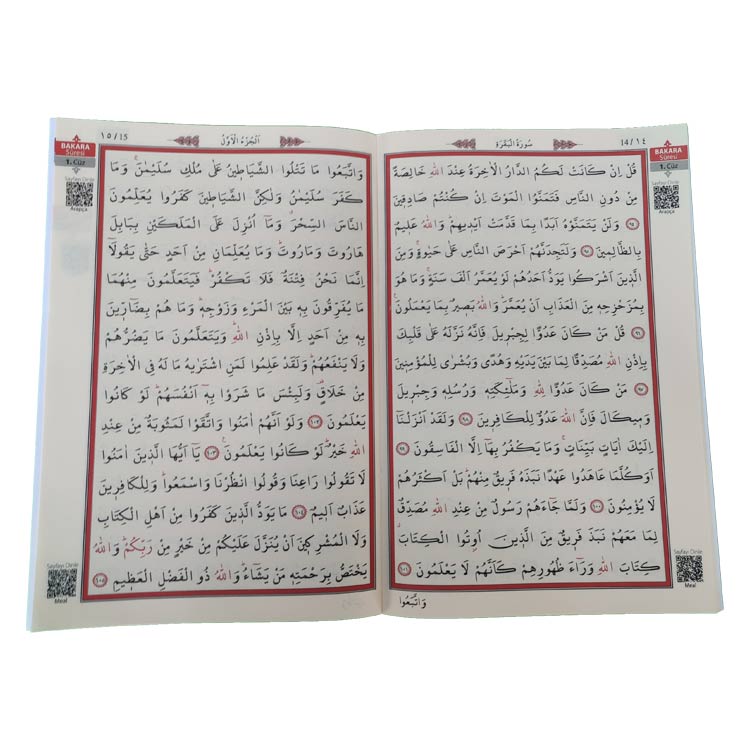 14/١٤
سُورَةُ الْبَقَرَةِ
BAKARA
Sûresi
1. Cüz
Sayfayı Dinle
Arapça
قُلْ اِنْ كَانَتْ لَكُمُ الدَّارُ الْاٰخِرَةُ عِنْدَ اللّٰهِ خَالِصَةً
مِنْ دُونِ النَّاسِ فَتَمَنَّوُا الْمَوْتَ اِنْ كُنْتُمْ صَادِقٖينَ
﴿٩٤﴾ وَلَنْ يَتَمَنَّوْهُ اَبَدًا بِمَا قَدَّمَتْ اَيْدٖيهِمْ وَاللّٰهُ عَلٖيمٌ
بِالظَّالِمٖينَ ﴿٩٥﴾ وَلَتَجِدَنَّهُمْ اَحْرَصَ النَّاسِ عَلٰى حَيٰوةٍ وَمِنَ
الَّذٖينَ اَشْرَكُوا يَوَدُّ اَحَدُهُمْ لَوْ يُعَمَّرُ اَلْفَ سَنَةٍ وَمَا هُوَ
بِمُزَحْزِحِهٖ مِنَ الْعَذَابِ اَنْ يُعَمَّرَ وَاللّٰهُ بَصٖيرٌ بِمَا يَعْمَلُونَ
﴿٩٦﴾ قُلْ مَنْ كَانَ عَدُوًّا لِجِبْرٖيلَ فَاِنَّهُ نَزَّلَهُ عَلٰى قَلْبِكَ
بِاِذْنِ اللّٰهِ مُصَدِّقًا لِمَا بَيْنَ يَدَيْهِ وَهُدًى وَبُشْرٰى لِلْمُؤْمِنٖينَ
﴿٩٧﴾ مَنْ كَانَ عَدُوًّا لِلّٰهِ وَمَلٰٓئِكَتِهٖ وَرُسُلِهٖ وَجِبْرٖيلَ
وَمٖيكَالَ فَاِنَّ اللّٰهَ عَدُوٌّ لِلْكَافِرٖينَ ﴿٩٨﴾ وَلَقَدْ اَنْزَلْنَٓا
اِلَيْكَ اٰيَاتٍ بَيِّنَاتٍ وَمَا يَكْفُرُ بِهَٓا اِلَّا الْفَاسِقُونَ ﴿٩٩﴾
اَوَكُلَّمَا عَاهَدُوا عَهْدًا نَبَذَهُ فَرٖيقٌ مِنْهُمْ بَلْ اَكْثَرُهُمْ
لَا يُؤْمِنُونَ ﴿١٠٠﴾ وَلَمَّا جَٓاءَهُمْ رَسُولٌ مِنْ عِنْدِ اللّٰهِ مُصَدِّقٌ
لِمَا مَعَهُمْ نَبَذَ فَرٖيقٌ مِنَ الَّذٖينَ اُوتُوا الْكِتَابَ
كِتَابَ اللّٰهِ وَرَٓاءَ ظُهُورِهِمْ كَاَنَّهُمْ لَا يَعْلَمُونَ ﴿١٠١﴾
وَاتَّبَعُوا
Sayfayı Dinle
Meal
اَلْجُزْءُ الْاَوَّلُ
١٥/15
BAKARA
Sûresi
1. Cüz
Sayfayı Dinle
Arapça
وَاتَّبَعُوا مَا تَتْلُوا الشَّيَاطٖينُ عَلٰى مُلْكِ سُلَيْمٰنَ وَمَا
كَفَرَ سُلَيْمٰنُ وَلٰكِنَّ الشَّيَاطٖينَ كَفَرُوا يُعَلِّمُونَ
النَّاسَ السِّحْرَ وَمَٓا اُنْزِلَ عَلَى الْمَلَكَيْنِ بِبَابِلَ
هَارُوتَ وَمَارُوتَ وَمَا يُعَلِّمَانِ مِنْ اَحَدٍ حَتّٰى يَقُولَٓا
اِنَّمَا نَحْنُ فِتْنَةٌ فَلَا تَكْفُرْ فَيَتَعَلَّمُونَ مِنْهُمَا
مَا يُفَرِّقُونَ بِهٖ بَيْنَ الْمَرْءِ وَزَوْجِهٖ وَمَا هُمْ بِضَٓارّٖينَ
بِهٖ مِنْ اَحَدٍ اِلَّا بِاِذْنِ اللّٰهِ وَيَتَعَلَّمُونَ مَا يَضُرُّهُمْ
وَلَا يَنْفَعُهُمْ وَلَقَدْ عَلِمُوا لَمَنِ اشْتَرٰيهُ مَا لَهُ فِى الْاٰخِرَةِ
مِنْ خَلَاقٍ وَلَبِئْسَ مَا شَرَوْا بِهٖٓ اَنْفُسَهُمْ لَوْ كَانُوا
يَعْلَمُونَ ﴿١٠٢﴾ وَلَوْ اَنَّهُمْ اٰمَنُوا وَاتَّقَوْا لَمَثُوبَةٌ مِنْ عِنْدِ
اللّٰهِ خَيْرٌ لَوْ كَانُوا يَعْلَمُونَ ﴿١٠٣﴾ يَٓا اَيُّهَا الَّذٖينَ اٰمَنُوا
لَا تَقُولُوا رَاعِنَا وَقُولُوا انْظُرْنَا وَاسْمَعُوا وَلِلْكَافِرٖينَ
عَذَابٌ اَلٖيمٌ ﴿١٠٤﴾ مَا يَوَدُّ الَّذٖينَ كَفَرُوا مِنْ اَهْلِ الْكِتَابِ
وَلَا الْمُشْرِكٖينَ اَنْ يُنَزَّلَ عَلَيْكُمْ مِنْ خَيْرٍ مِنْ رَبِّكُمْ وَاللّٰهُ
يَخْتَصُّ بِرَحْمَتِهٖ مَنْ يَشَٓاءُ وَاللّٰهُ ذُو الْفَضْلِ الْعَظٖيمِ ﴿١٠٥﴾
Sayfayı Dinle
Meal